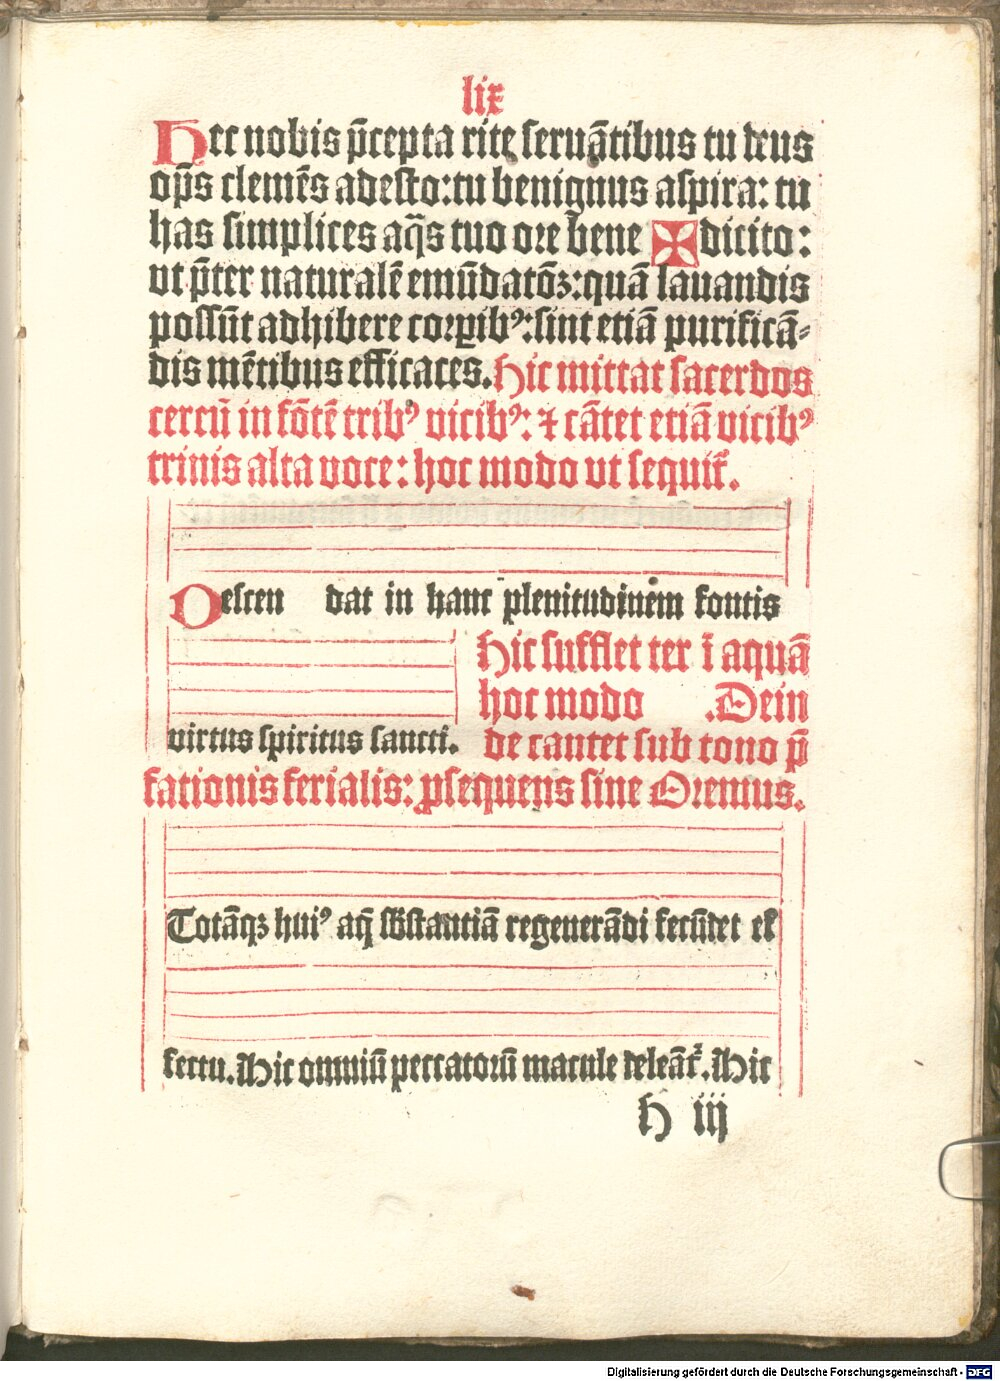 lix
Hec nobis p̄cepta rite seruātibus tu deus
op̄s clemēs adesto: tu benignus aspira: tu
has simplices aq̄s tuo ore bene ✠ dicito:
ut p̄ter naturalē emūdatōꝫ: quā lauandis
possūt adhibere corꝑibꝰ: sint etiā purificā⸗
dis mētibus efficaces. Hic mittat sacerdos
cereū in fōtē tribꝰ vicibꝰ: ⁊ cātet etiā vicibꝰ
trinis alta voce: hoc modo ut sequit᷑.
Descen dat in hanc plenitudinem fontis
Hic sufflet ter ī aquā
hoc modo .Dein
virtus spiritus sancti.
de cantet sub tono p̄
fationis ferialis: ꝓsequens sine Oremus.
Totāqꝫ huiꝰ aq̄ sb̄stantiā regenerādi fecūdet ef
fectu. Hic omniū peccatorū macule deleāt᷑. Hic
h iij
Digitalisierung gefördert durch die Deutsche Forschungsgemeinschaft - DFG